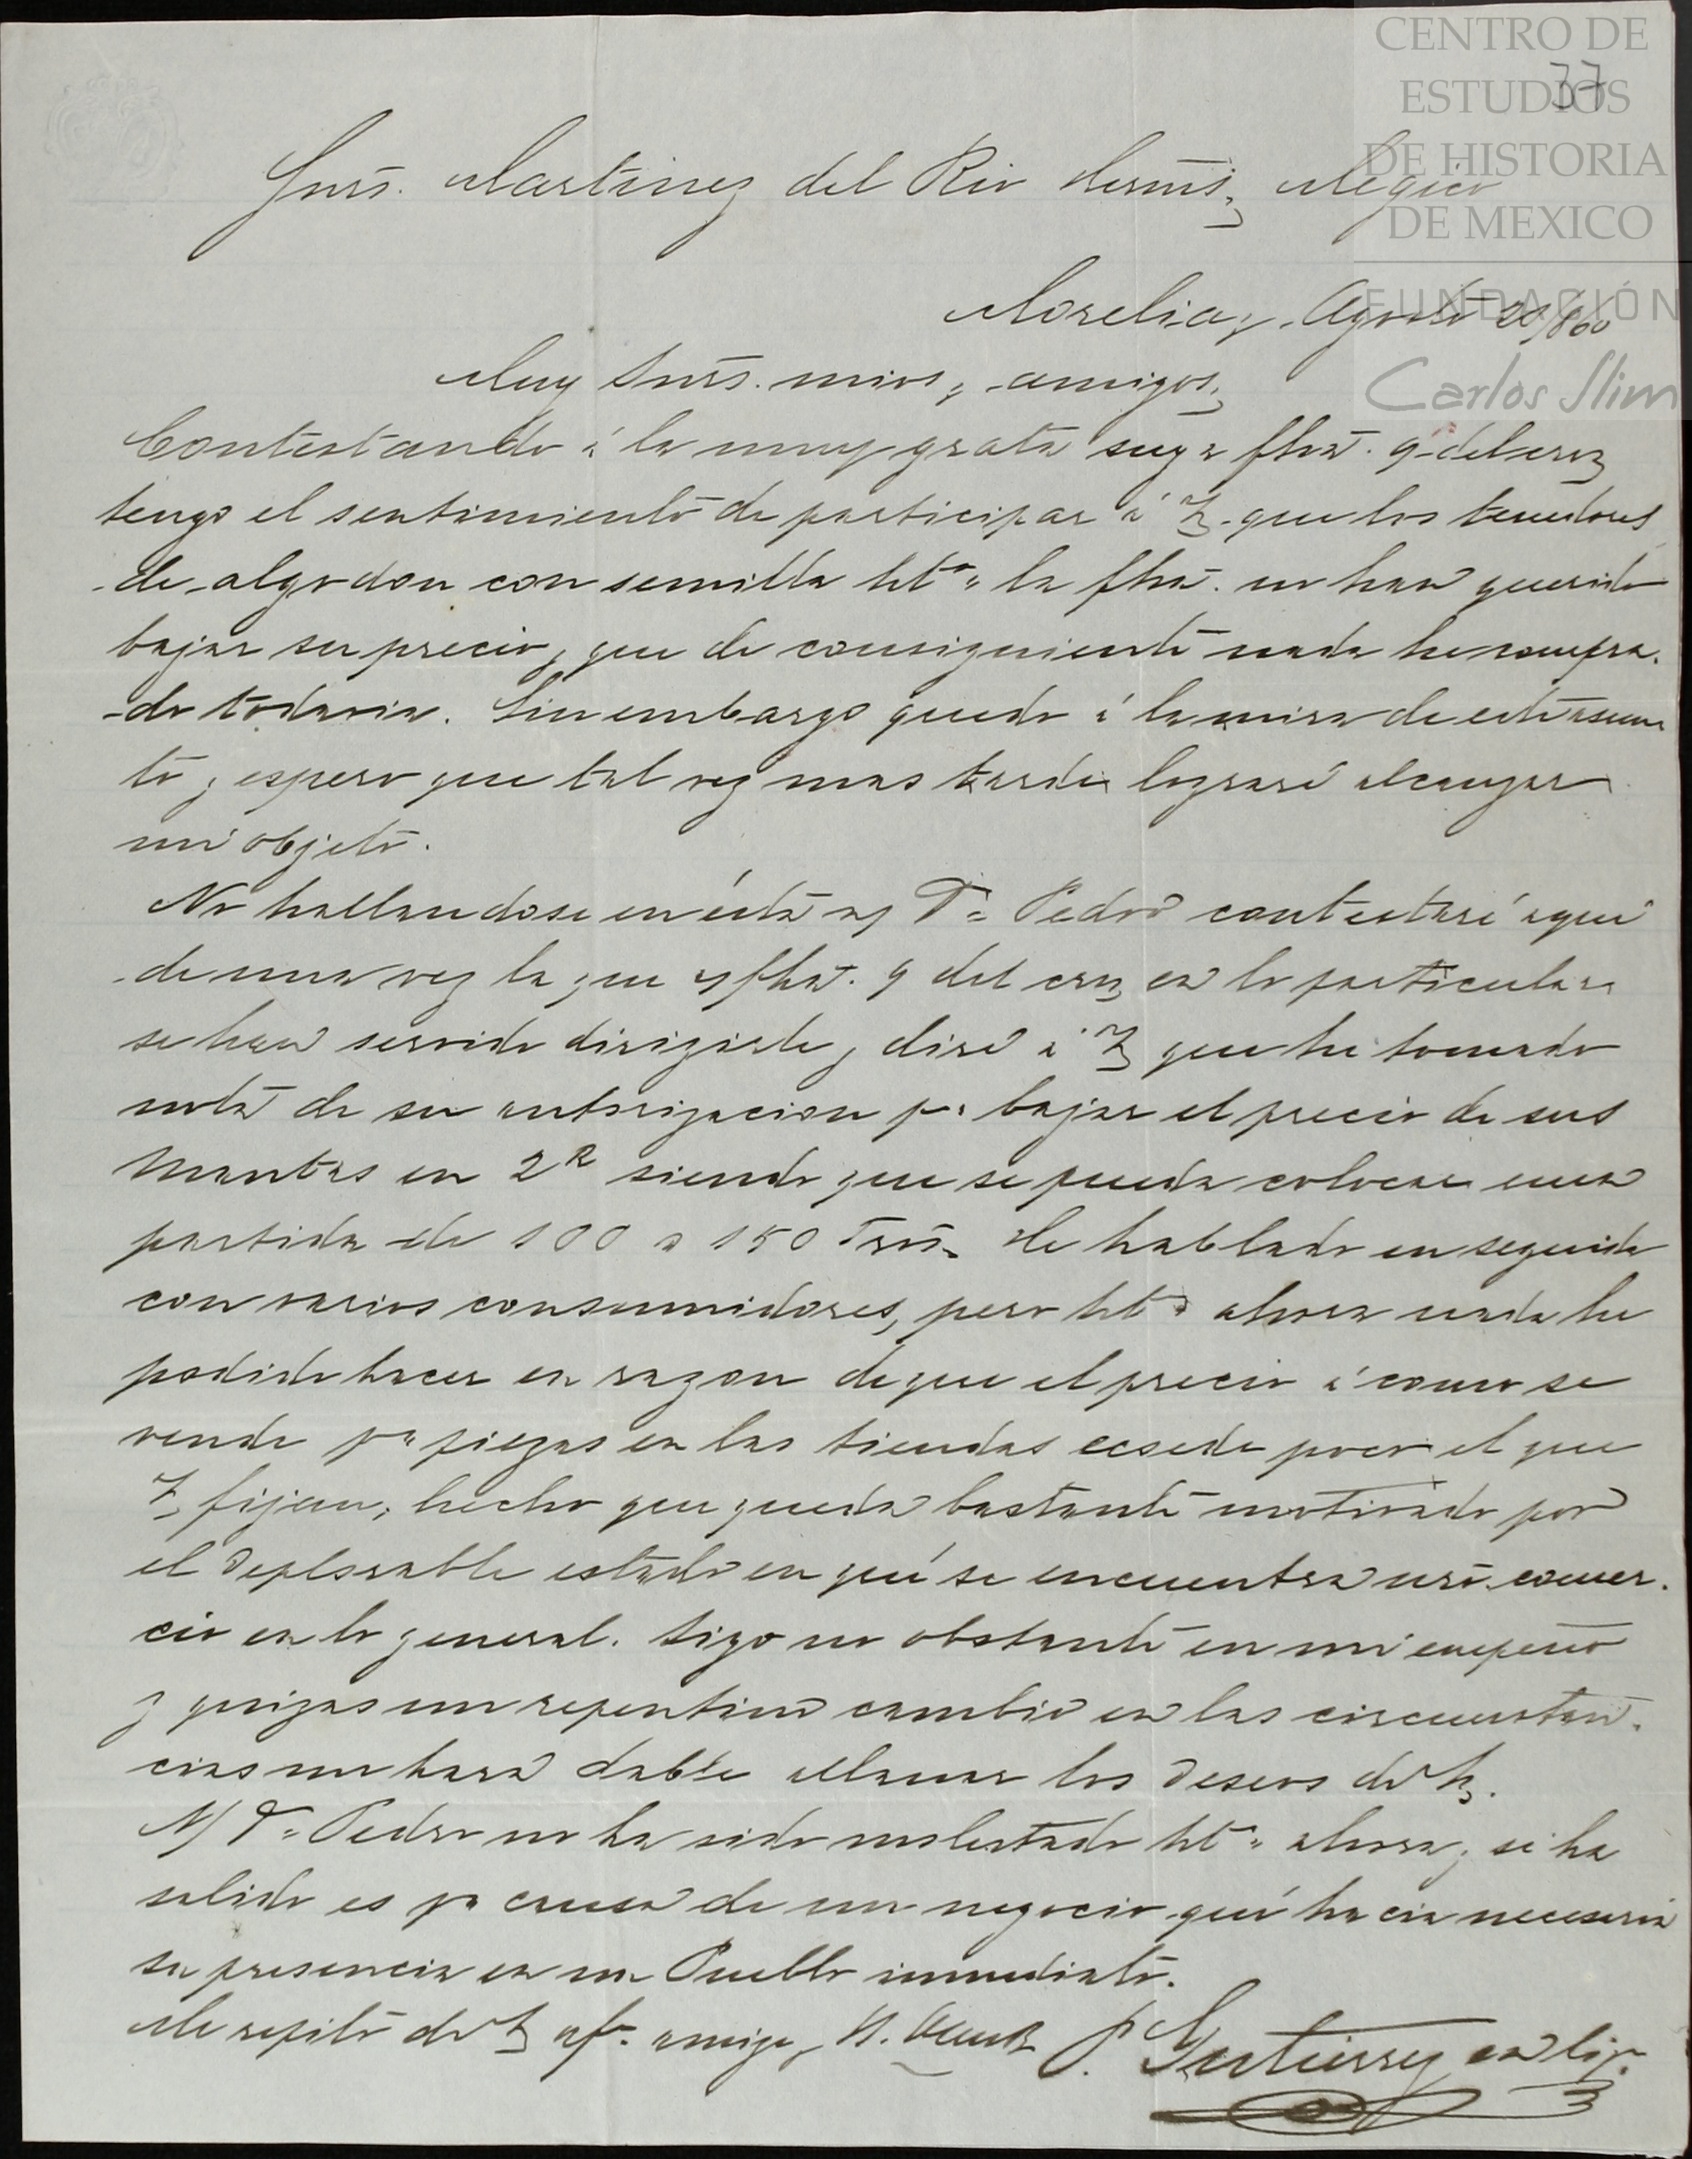 CENTRO DE
ESTUDIOS
DE HISTORIA
DE MEXICO
FUNDACIÓN
Carlos Slim
37
Snrs. Martinez del Rio Herms, Megico
Morelia, Agosto 20/860
Muy Snrs. mios y amigos,
Contestando á la muy grata suya fha. 9 del
tengo el sentimiento de participar á V. que los tenedores
de algodon con semilla hta. la fha. no han querido
bajar su precio, que de consiguiente nada he compra-
-do todavia. Sin embargo quedo á la mira de este asun
to y espero que tal vez mas tarde lograré alcanzar
mi objeto.
No hallandose en ésta Dn. Pedro contestaré aqui
de una vez la que fha. 9 del en lo particular
se han servido dirigirle, y diré á V que he tomado
nota de su autorizacion pa. bajar el precio de sus
Mantas en 2R siendo que se pueda colocar una
partida de 100 a 150 He hablado en seguida
con varios consumidores, pero hta. ahora nada he
podido hacer en razon de que el precio á como se
vende pr piezas en las tiendas ecsede poco el que
V. fijan; hecho que queda bastante motivado por
el deplorable estado en qué se encuentra nro. comer-
cio en lo general. Sigo no obstante en mi empeño
y quizas un repentino cambio en las circunstan-
cias me hará dable llenar los deseos de V.
N/ Dn. Pedro no ha sido molestado hta. ahora; si ha
salido es pr causa de un negocio qué hacia necesaria
su presencia en un Pueblo inmediato.
Me repito de V af. amigo,
P. Gutierrez en liq.